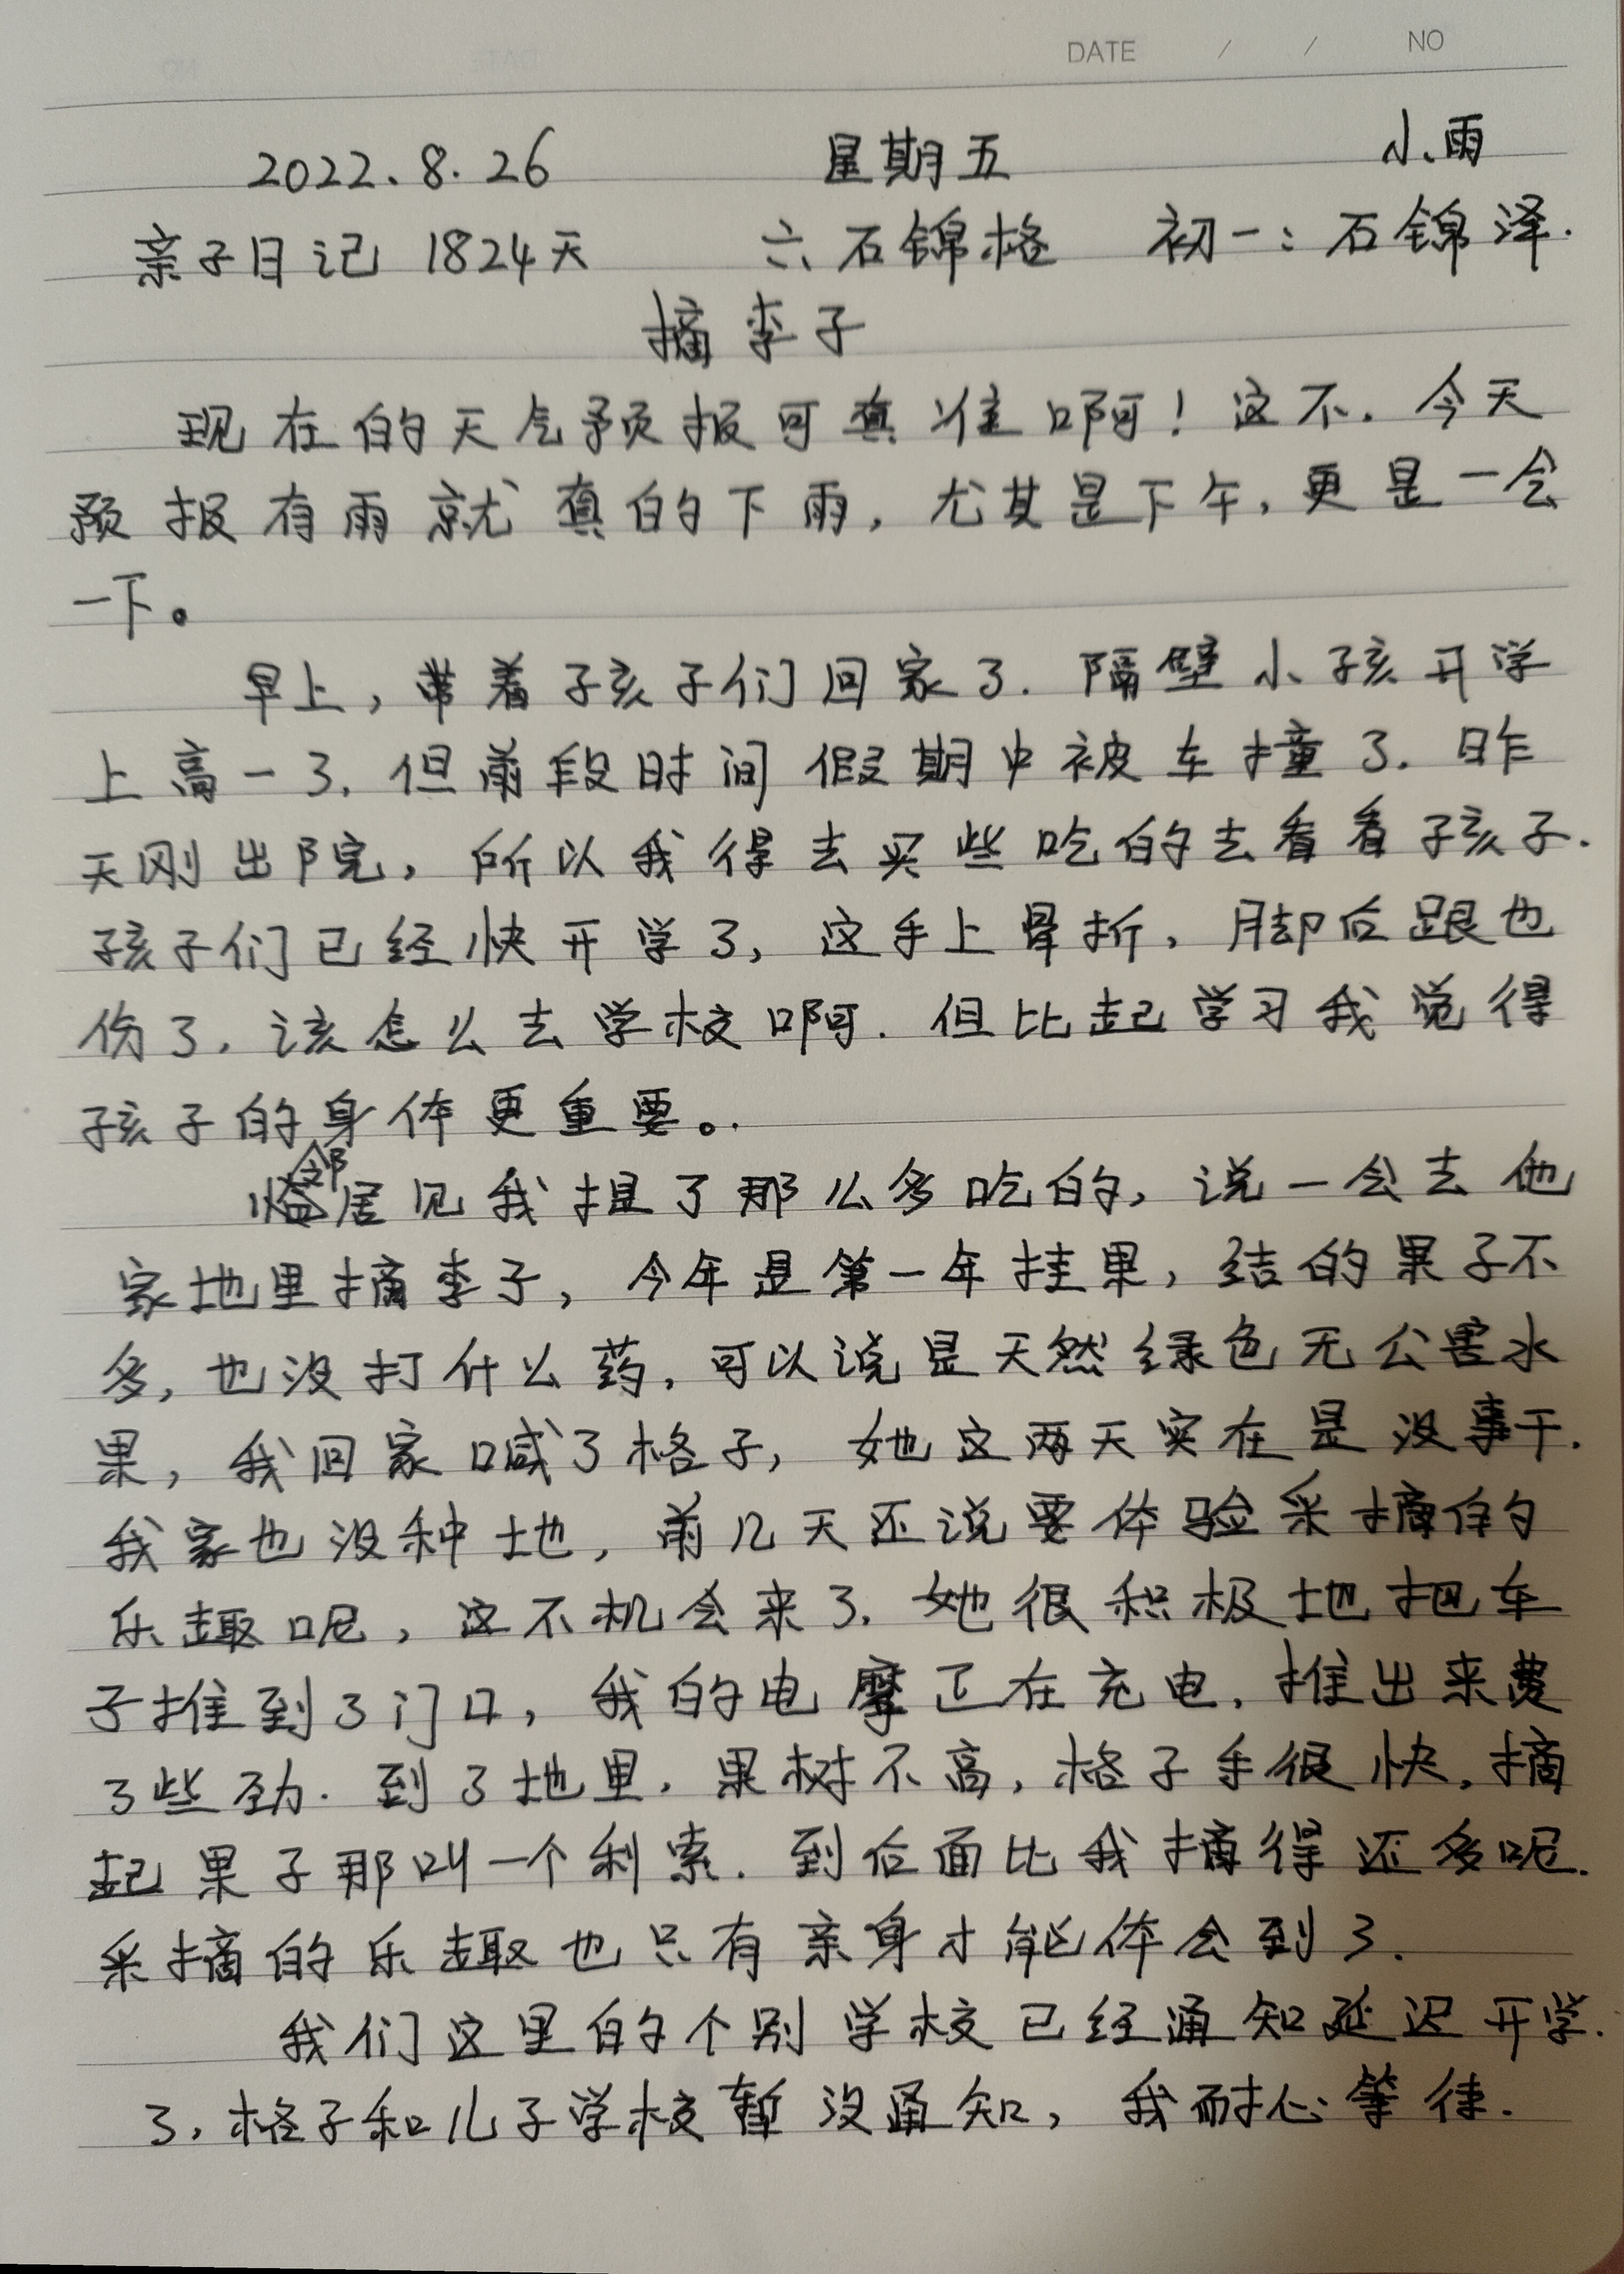 DATE / / NO
2022.8.26 星期五 小雨
亲子日记 1824天 六、石锦格 初一:石锦泽.
摘李子
现在的天气预报可真准啊!这不.今天
预报有雨就真的下雨,尤其是下午,更是一会
一下。
早上,带着孩子们回家了.隔壁小孩开学
上高一了.但前段时间假期中被车撞了.昨
天刚出院,所以我得去买些吃的去看看孩子.
孩子们已经快开学了,这手上骨折,脚后跟也
伤了.该怎么去学校啊.但比起学习我觉得
孩子的身体更重要。.
邻居见我提了那么多吃的,说一会去他
家地里摘李子,今年是第一年挂果,结的果子不
多,也没打什么药,可以说是天然绿色无公害水
果,我回家喊了格子,她这两天实在是没事干.
我家也没种地,前几天还说要体验采摘的
乐趣呢,这不机会来了.她很积极地把车
子推到了门口,我的电摩正在充电,推出来费
了些劲.到了地里,果树不高,格子手很快,摘
起果子那叫一个利索.到后面比我摘得还多呢.
采摘的乐趣也只有亲身才能体会到了.
我们这里的个别学校已经通知延迟开学.
了,格子和儿子学校暂没通知,我耐心等待.